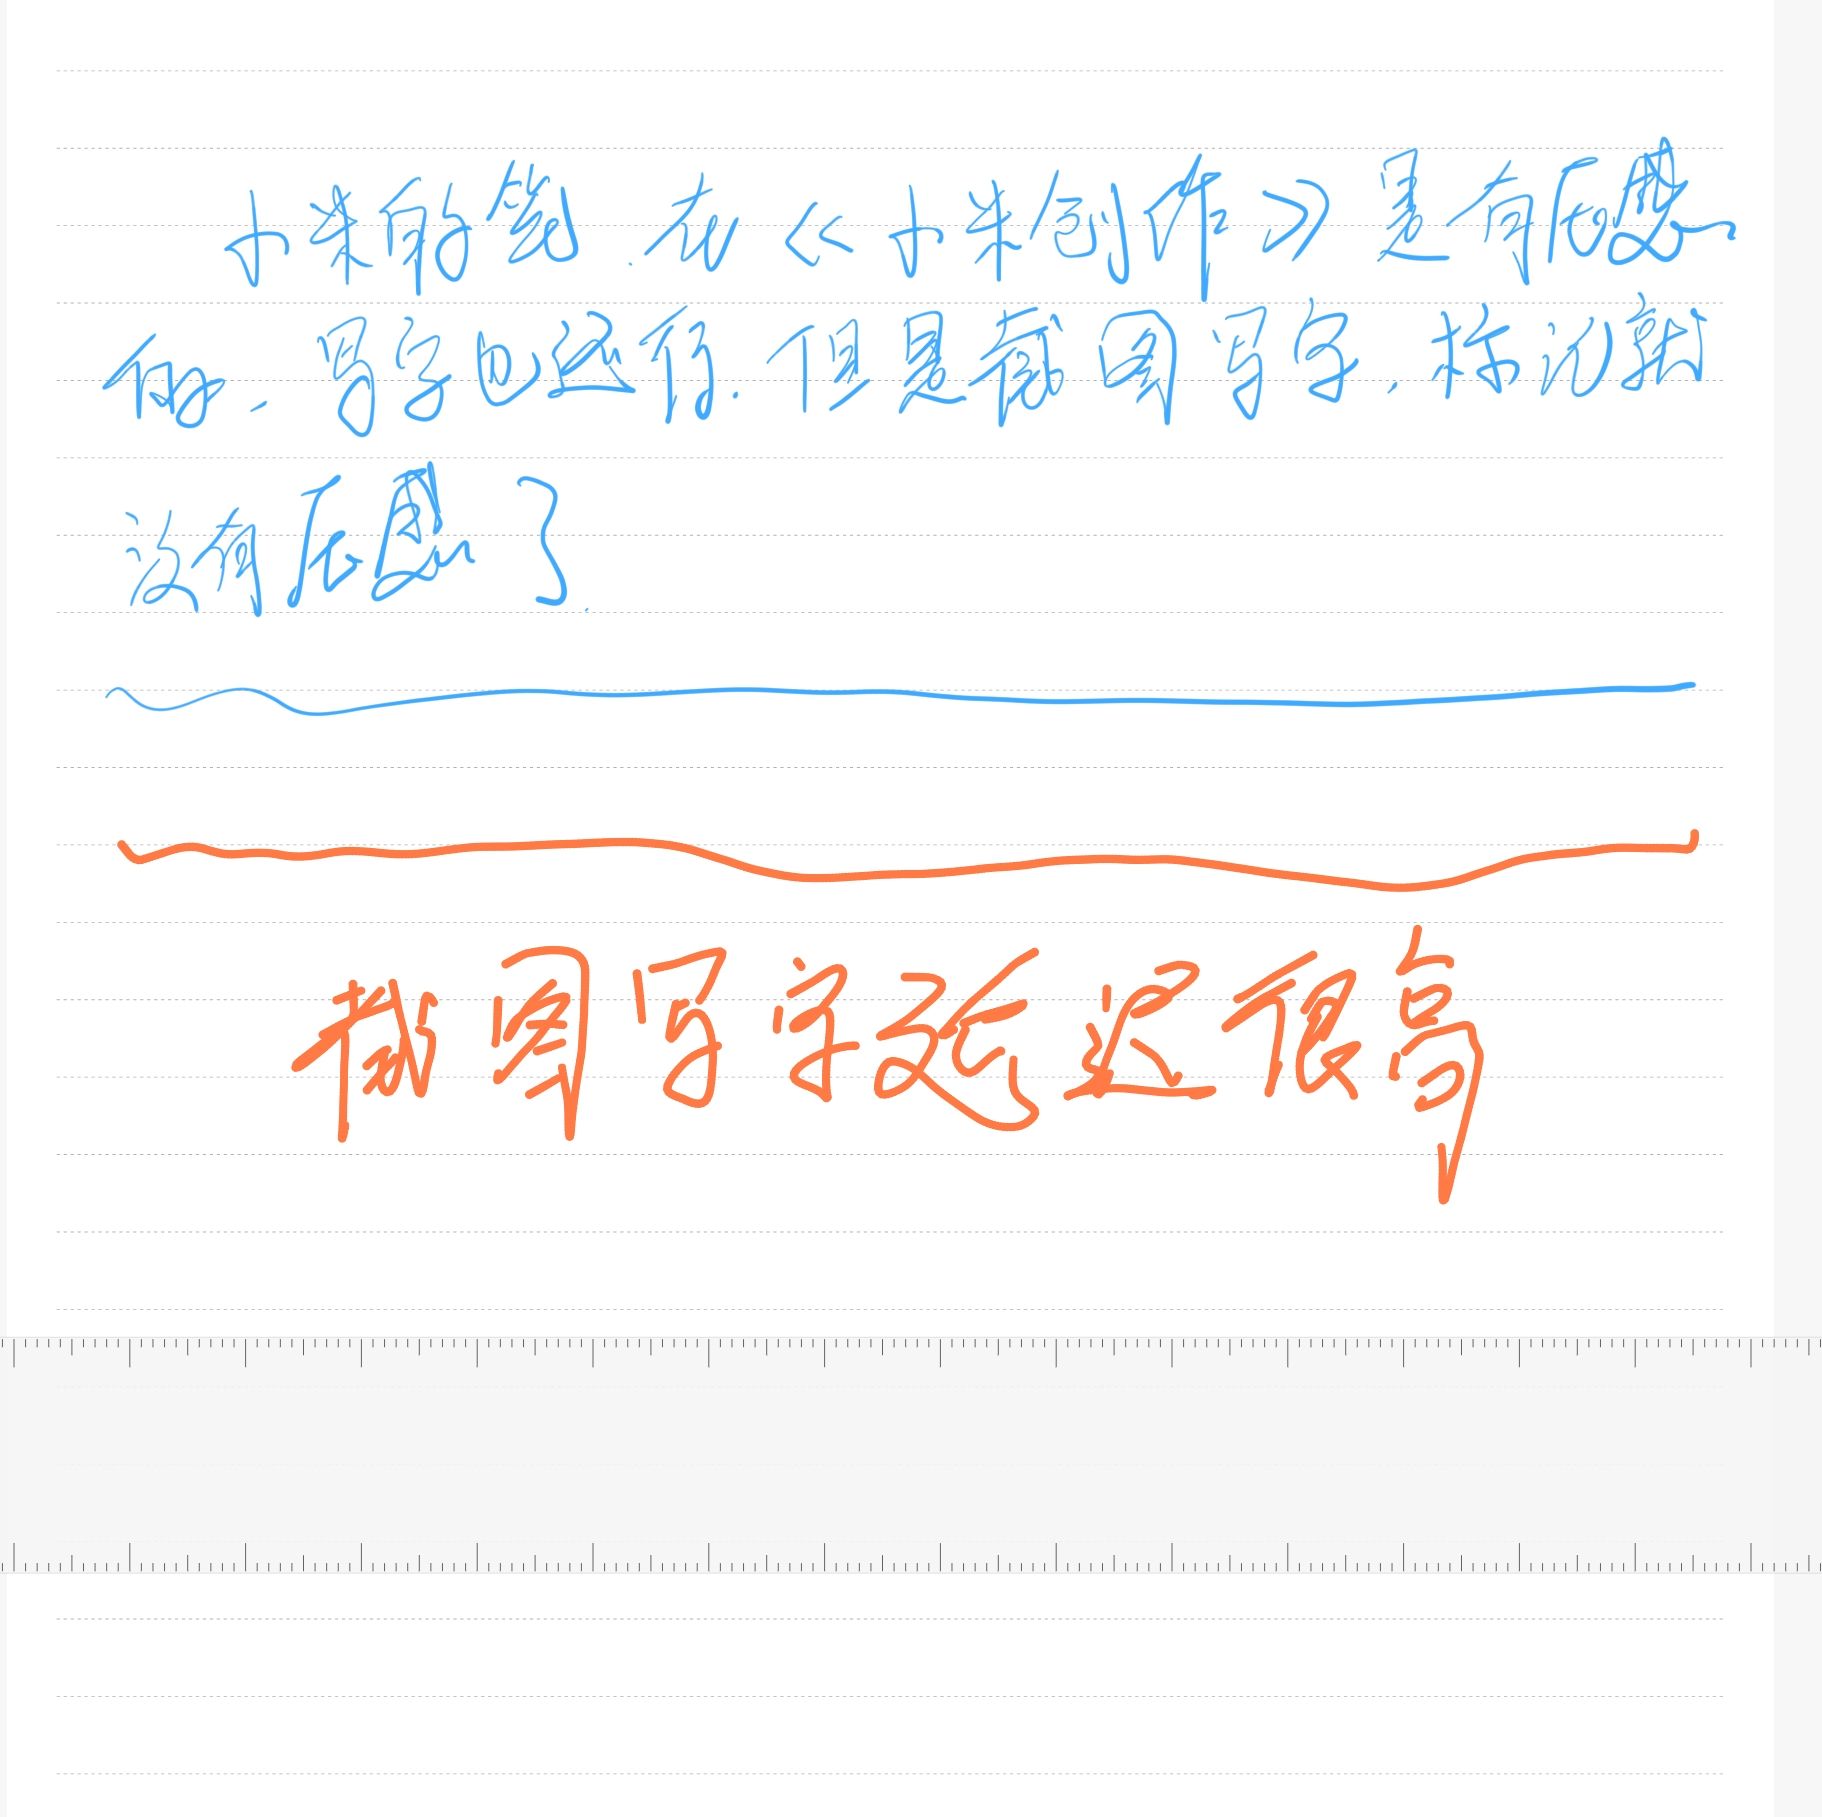 小米的笔.在《小米创作》是有压感
的，写字也还行.但是截图写字，标记就
没有压感了.
截图写字延迟很高